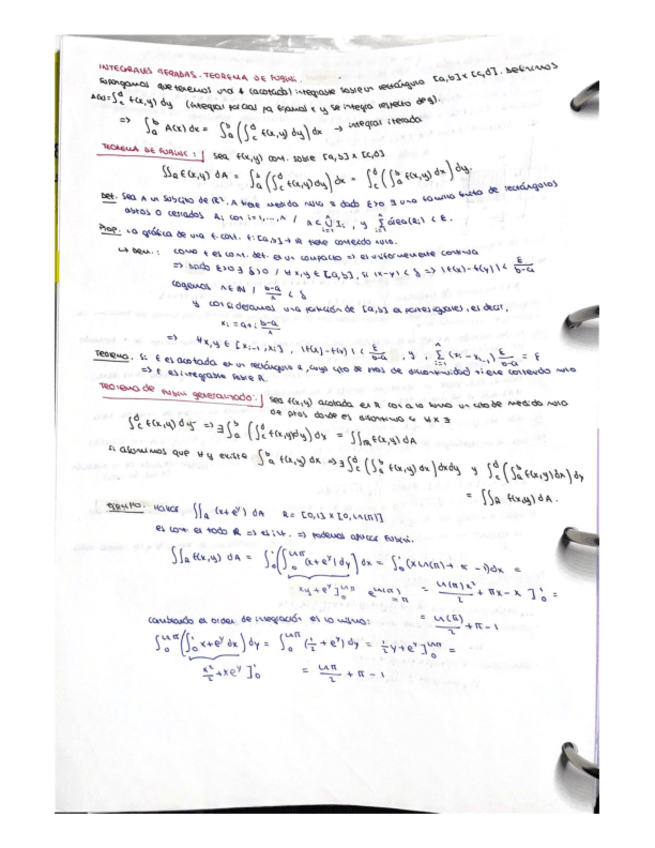 INTEGRALES ITERADAS. TEOREMA DE FUBINI.
Supongamos que tenemos una f (acotada) integrable sobre un rectángulo [a,b] x [c,d]. Definimos
A(x) = ∫_c^d f(x,y) dy (integral parcial pq fijamos x y se integra respecto de y).
=> ∫_a^b A(x) dx = ∫_a^b (∫_c^d f(x,y) dy) dx → integral iterada
TEOREMA DE FUBINI: sea f(x,y) cont. sobre [a,b] x [c,d]
∬_R f(x,y) dA = ∫_a^b (∫_c^d f(x,y) dy) dx = ∫_c^d (∫_a^b f(x,y) dx) dy.
Def. Sea A un subcjto de ℝ². A tiene medida nula si dado ε>0 ∃ una familia finita de rectángulos
abtos o cerrados Ri con i=1,...,n / A ⊂ ⋃_{i=1}^n Ii, y ∑_{i=1}^n área(Ri) < ε.
Prop. La gráfica de una f. cont. f: [a,b] → ℝ tiene contenido nulo.
↳ Dem.: como f es cont. def. en un compacto => es uniformemente continua
=> dado ε>0 ∃ δ>0 / ∀x,y ∈ [a,b], si |x-y| < δ => |f(x)-f(y)| < ε/(b-a)
cogemos n∈ℕ / (b-a)/n < δ
y consideramos una partición de [a,b] en partes iguales, es decir,
xi = a+i (b-a)/n
=> ∀x,y ∈ [xi-1, xi], |f(x)-f(y)| < ε/(b-a), y, ∑_{i=1}^n (xi - xi-1) ε/(b-a) = ε
Teorema. Si f es acotada en un rectángulo R, cuyo cjto de ptos de discontinuidad tiene contenido nulo
=> f es integrable sobre R.
Teorema de Fubini generalizado: sea f(x,y) acotada en R con a lo sumo un cjto de medida nula
de ptos donde es discontinua y ∀x ∃
∫_c^d f(x,y) dy => ∃ ∫_a^b (∫_c^d f(x,y) dy) dx = ∬_R f(x,y) dA
si asumimos que ∀y existe ∫_a^b f(x,y) dx => ∃ ∫_c^d (∫_a^b f(x,y) dx) dxdy y ∫_c^d (∫_a^b f(x,y) dx) dy
= ∬_R f(x,y) dA.
EJEMPLO. Hallar ∬_R (x+e^y) dA R = [0,1] x [0,ln(π)]
es cont en todo R => es int. => podemos aplicar Fubini.
∬_R f(x,y) dA = ∫_0^1 (∫_0^{lnπ} (x+e^y) dy) dx = ∫_0^1 (x ln(π) + π - 1) dx =
xy + e^y ]_0^{lnπ} e^{ln(π)} = π = ln(π)x²/2 + πx - x ]_0^1 =
= ln(π)/2 + π - 1
cambiando el orden de integración es lo mismo:
∫_0^{lnπ} (∫_0^1 x+e^y dx) dy = ∫_0^{lnπ} (1/2 + e^y) dy = 1/2 y + e^y ]_0^{lnπ} =
x²/2 + xe^y ]_0^1 = lnπ/2 + π - 1